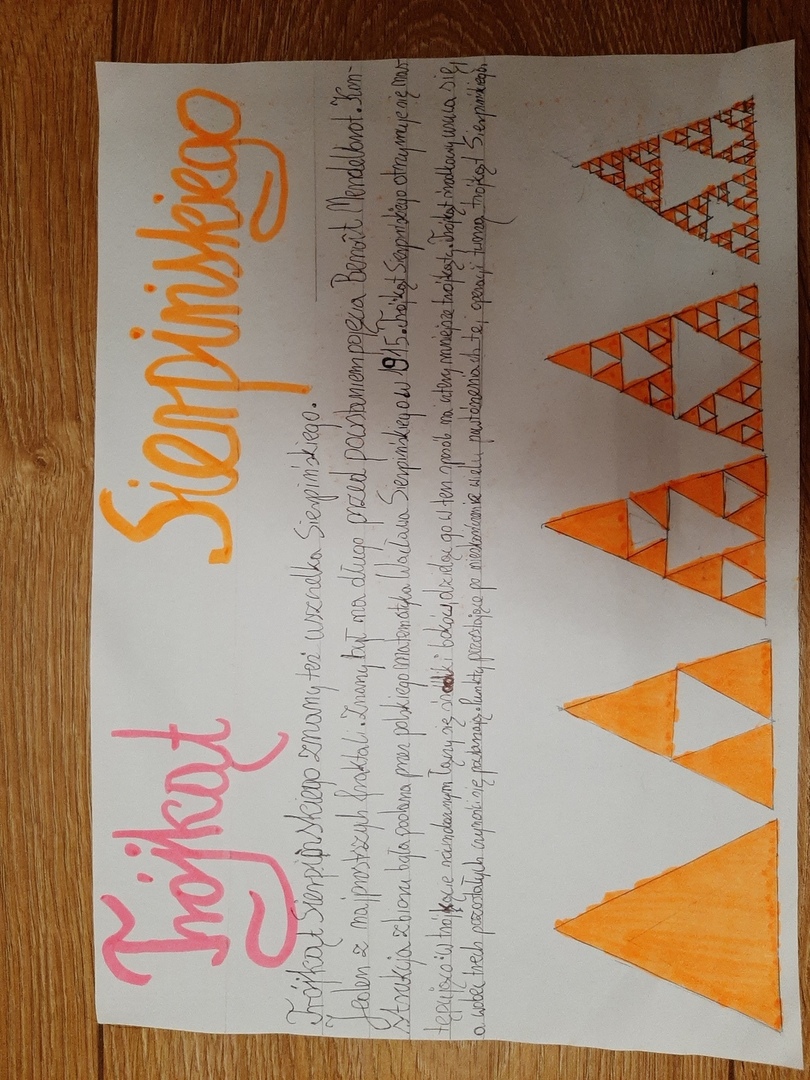 Trójkąt Sierpińskiego
Trójkąt Sierpińskiego znany też uszczelka Sierpińskiego.
Jeden z najprostszych fraktali. Znany był na długo przed powstaniem pojęcia Benoît Mendelbrot. Kon-
strukcja zbioru była podana przez polskiego matematyka Wacława Sierpińskiego w 1915. Trójkąt Sierpińskiego otrzymuje się nas-
tępująco: w trójkącie równobocznym łączy się środki boków, dzieląc go w ten sposób na cztery mniejsze trójkąty. Trójkąt środkowy usuwa się,
a wobec trzech pozostałych czynności się powtarzają. Punkty pozostające po nieskończenie wielu powtórzeniach tej operacji tworzą trójkąt Sierpińskiego.